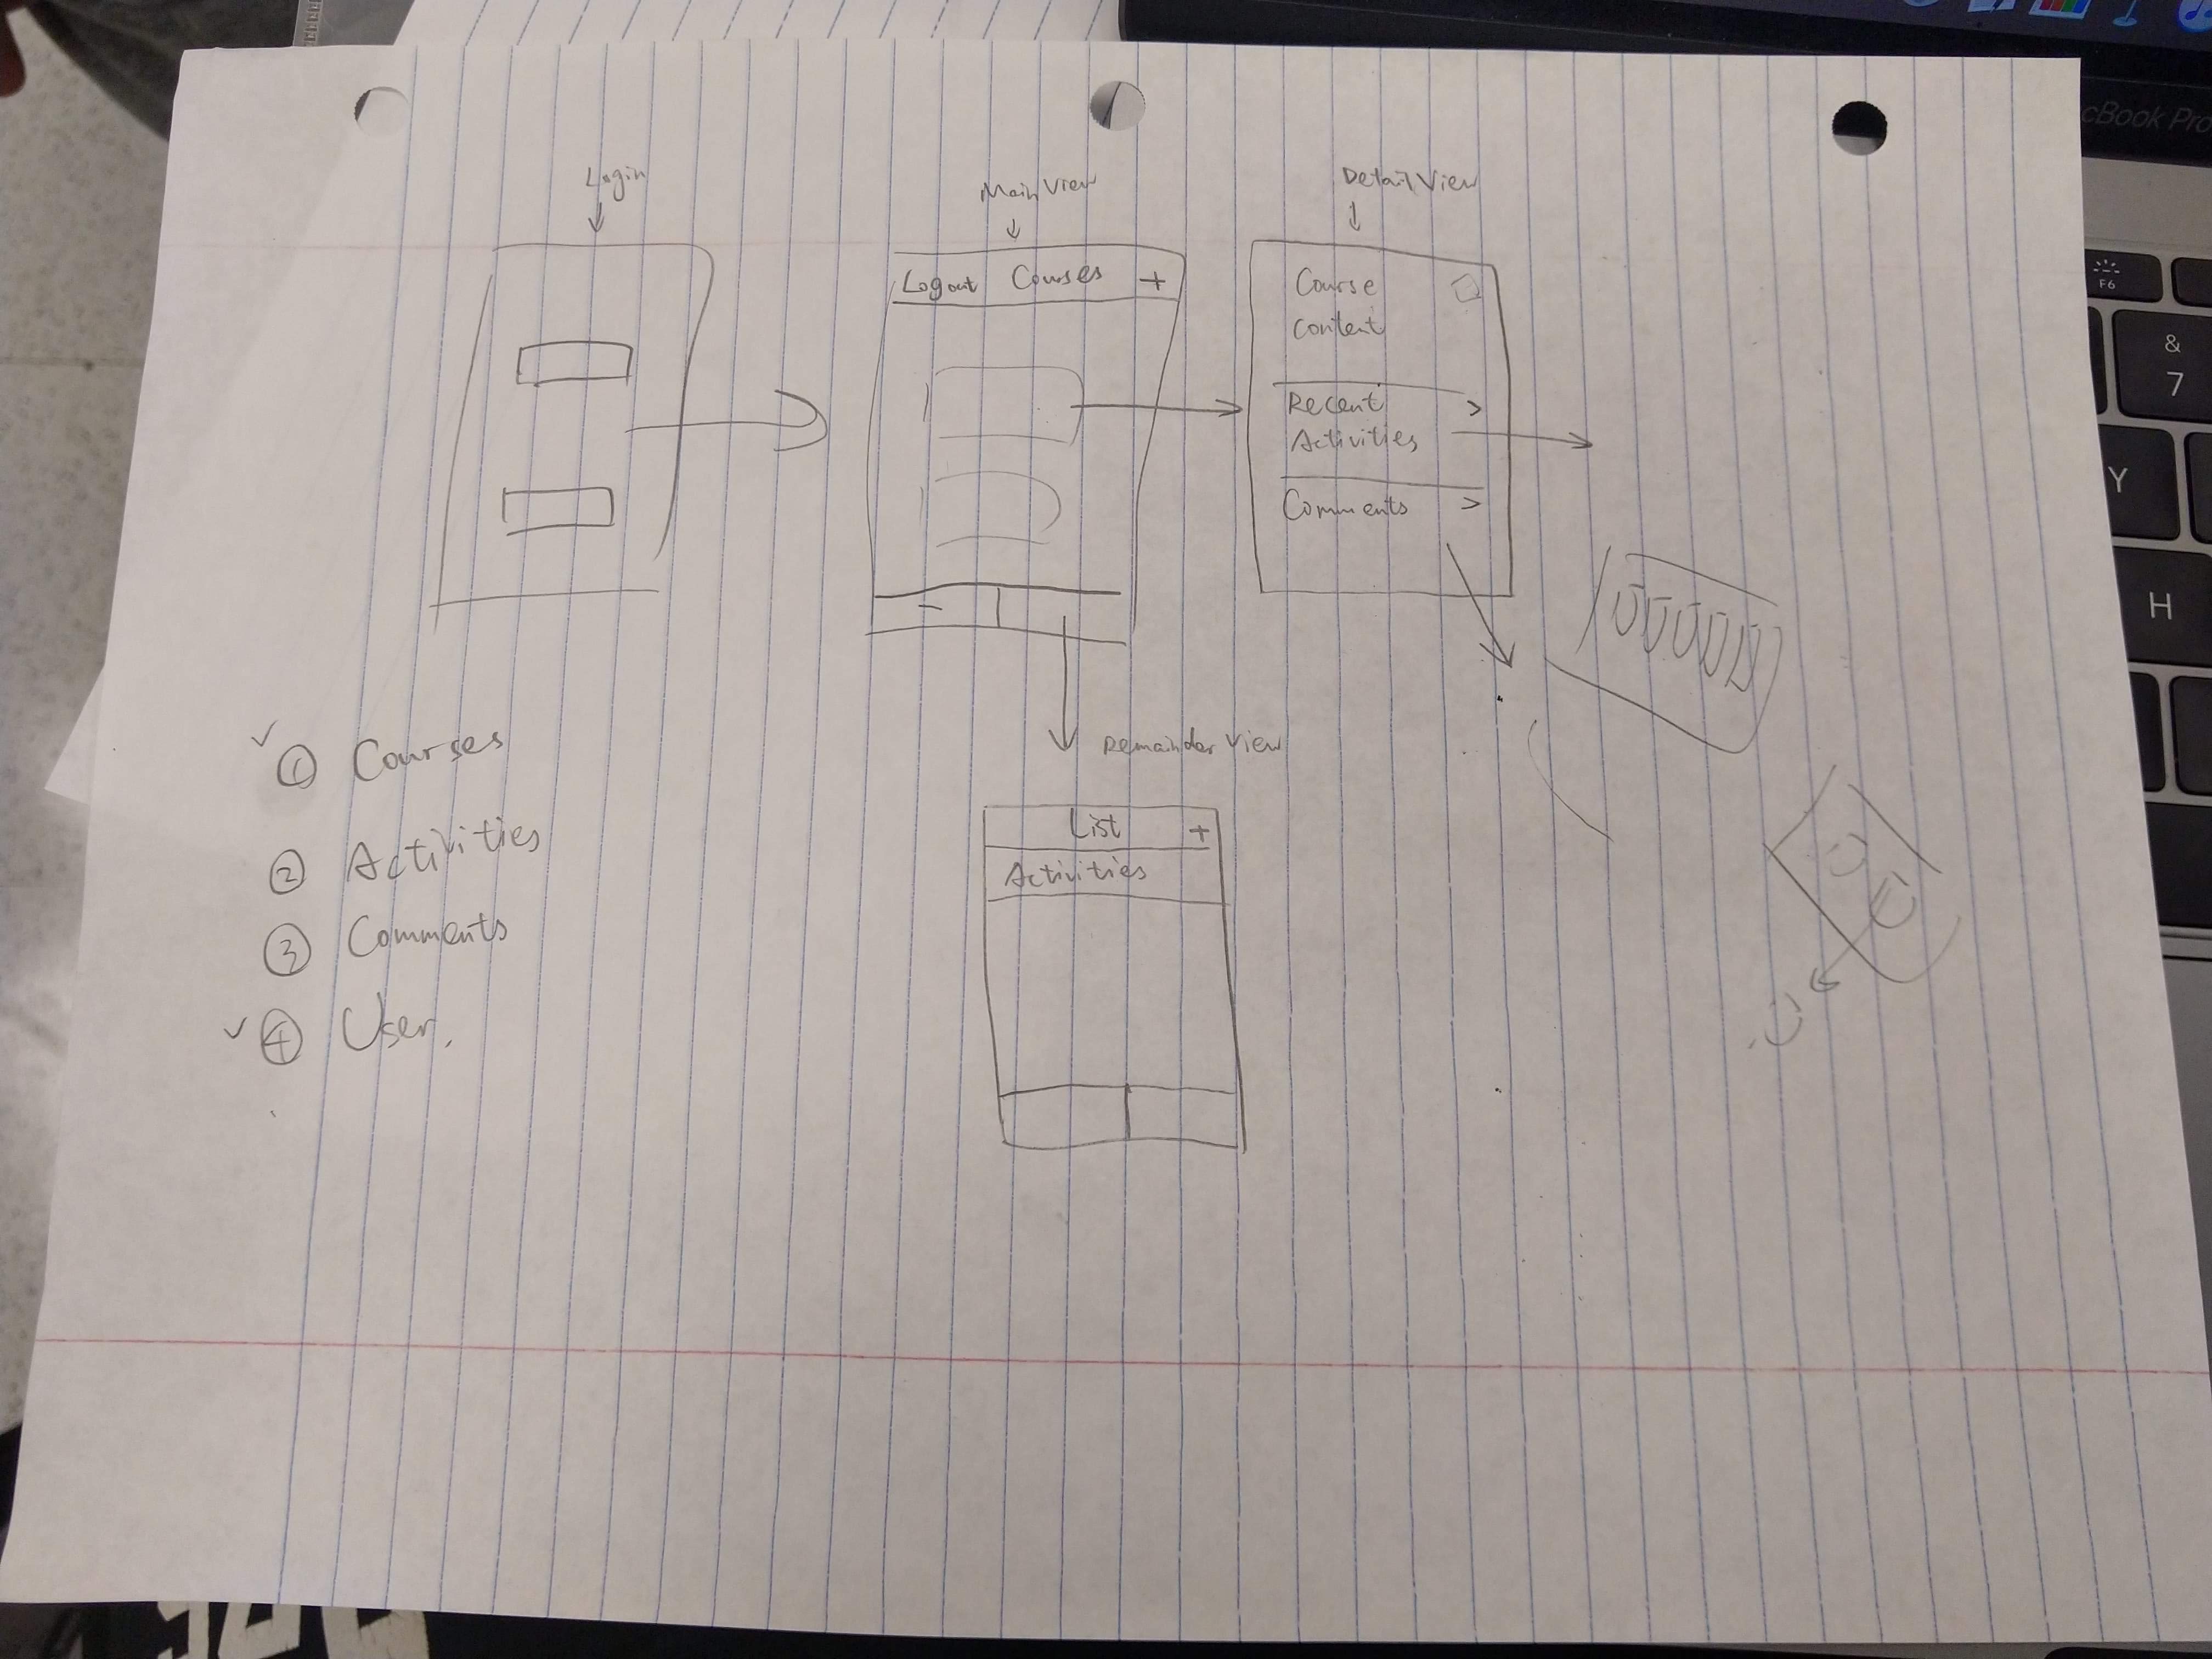 Login
Main View
Detail View
Logout Courses +
Course
Content
Recent >
Activities
Comments >
Remainder View
List +
Activities
① Courses
② Activities
③ Comments
④ User.
cBook Pro
F6
&
7
Y
H